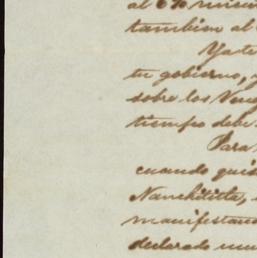 al 6% mism
tambien al
Ya te
tu gobierno, y
sobre los Ven
tiempo debe
Para
cuando quis
Nanchititla,
manifestan
declarado un